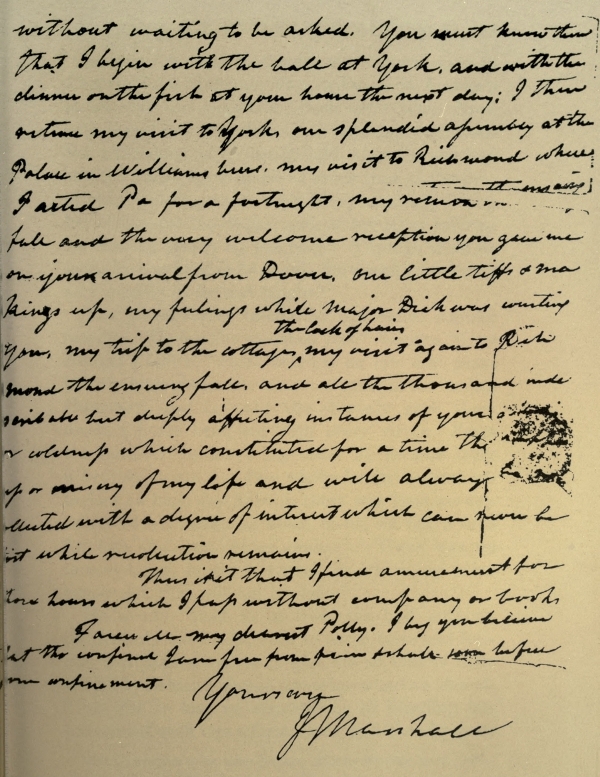 without waiting to be asked. You must know then
that I begin with the ball at York, and with the
dinner on the fish at your house the next day: I then
retrace my visit to York, our splendid assembly at the
Palace in Williamsburg, my visit to Richmond where
I acted Pa for a fortnight, my return the ensuing
fall and the very welcome reception you gave me
on your arrival from Dover, our little tiffs & ma
kings up, my feelings while Major Dick was courting
you, my trip to the cottage, the lock of hair, my visit again to Rich
mond the ensuing fall, and all the thousand inde
but deeply affecting instances of your
or coldness which constituted for a time the
or misery of my life and will always be
ollected with a degree of interest which can never be
ost while recollection remains.
Thus is it that I find amusement for
those hours which I pass without company or books
Farewell my dearest Polly. I beg you believe
tho confined I am free from pain & shall soon be free
from confinement.
Yours ever
J Marshall